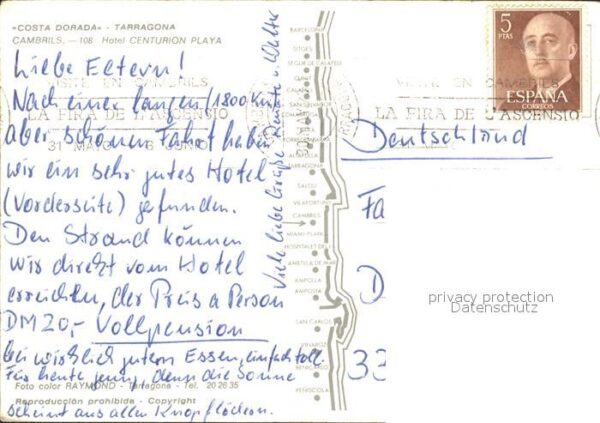 «COSTA DORADA» - TARRAGONA
CAMBRILS. — 108 Hotel CENTURION PLAYA
Liebe Eltern!
Nach einer langen (1800 Km)
aber schönen Fahrt haben
wir ein sehr gutes Hotel
(Vorderseite) gefunden.
Den Strand können
wir direkt vom Hotel
erreichen, der Preis a Person
DM 20,- Vollpension
bei wirklich gutem Essen, einfach toll.
Für heute genug, denn die Sonne
scheint aus allen Knopflöchern.
Viele liebe Grüße Renate u. Walter
Foto color RAYMOND - Tarragona - Tel. 20 26 35
Reproducción prohibida - Copyright
BARCELONA
SITGES
SEGUR DE CALAFELL
CUNIT
CALAFELL
SAN SALVADOR
TARRAGONA
SALOU
VILAFORTUNY
CAMBRILS
MIAMI-PLAYA
HOSPITALET DEL I.
AMETLLA DE MAR
AMPOLLA
AMPOSTA
SAN CARLOS
VINAROZ
BENICARLO
PEÑISCOLA
EN CAMBRILS
LA FIRA DE L'ASCENSIO
31 MAIG
EN CAMBRILS
LA FIRA DE L'ASCENSIO
5
PTAS
ESPAÑA
CORREOS
Deutschland
Fa
D
33
privacy protection
Datenschutz